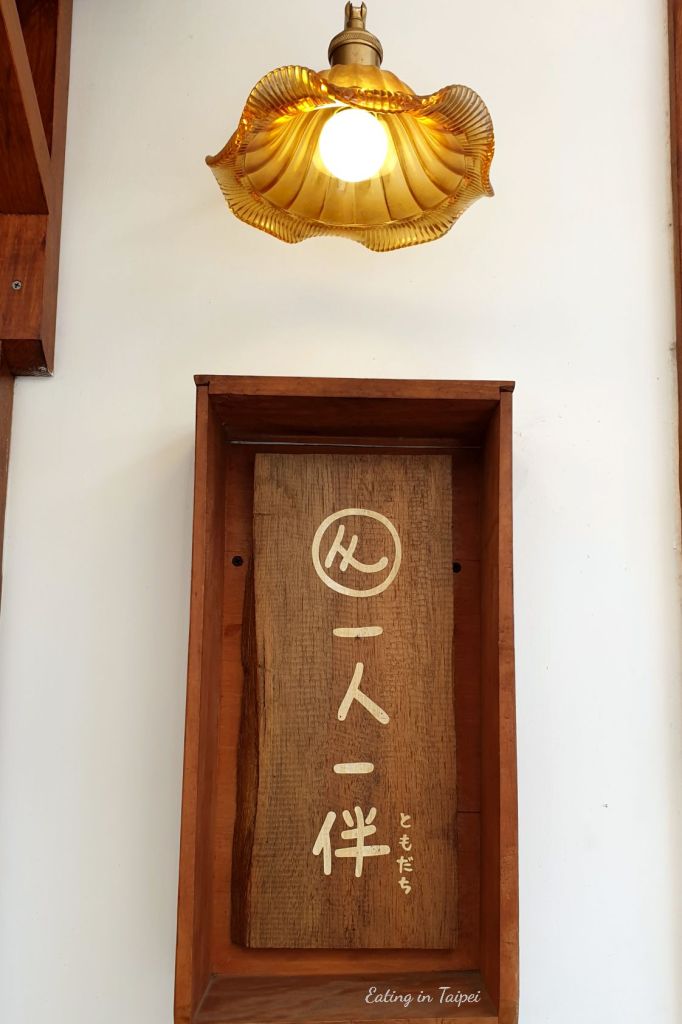 从
一人一伴
ともだち
Eating in Taipei